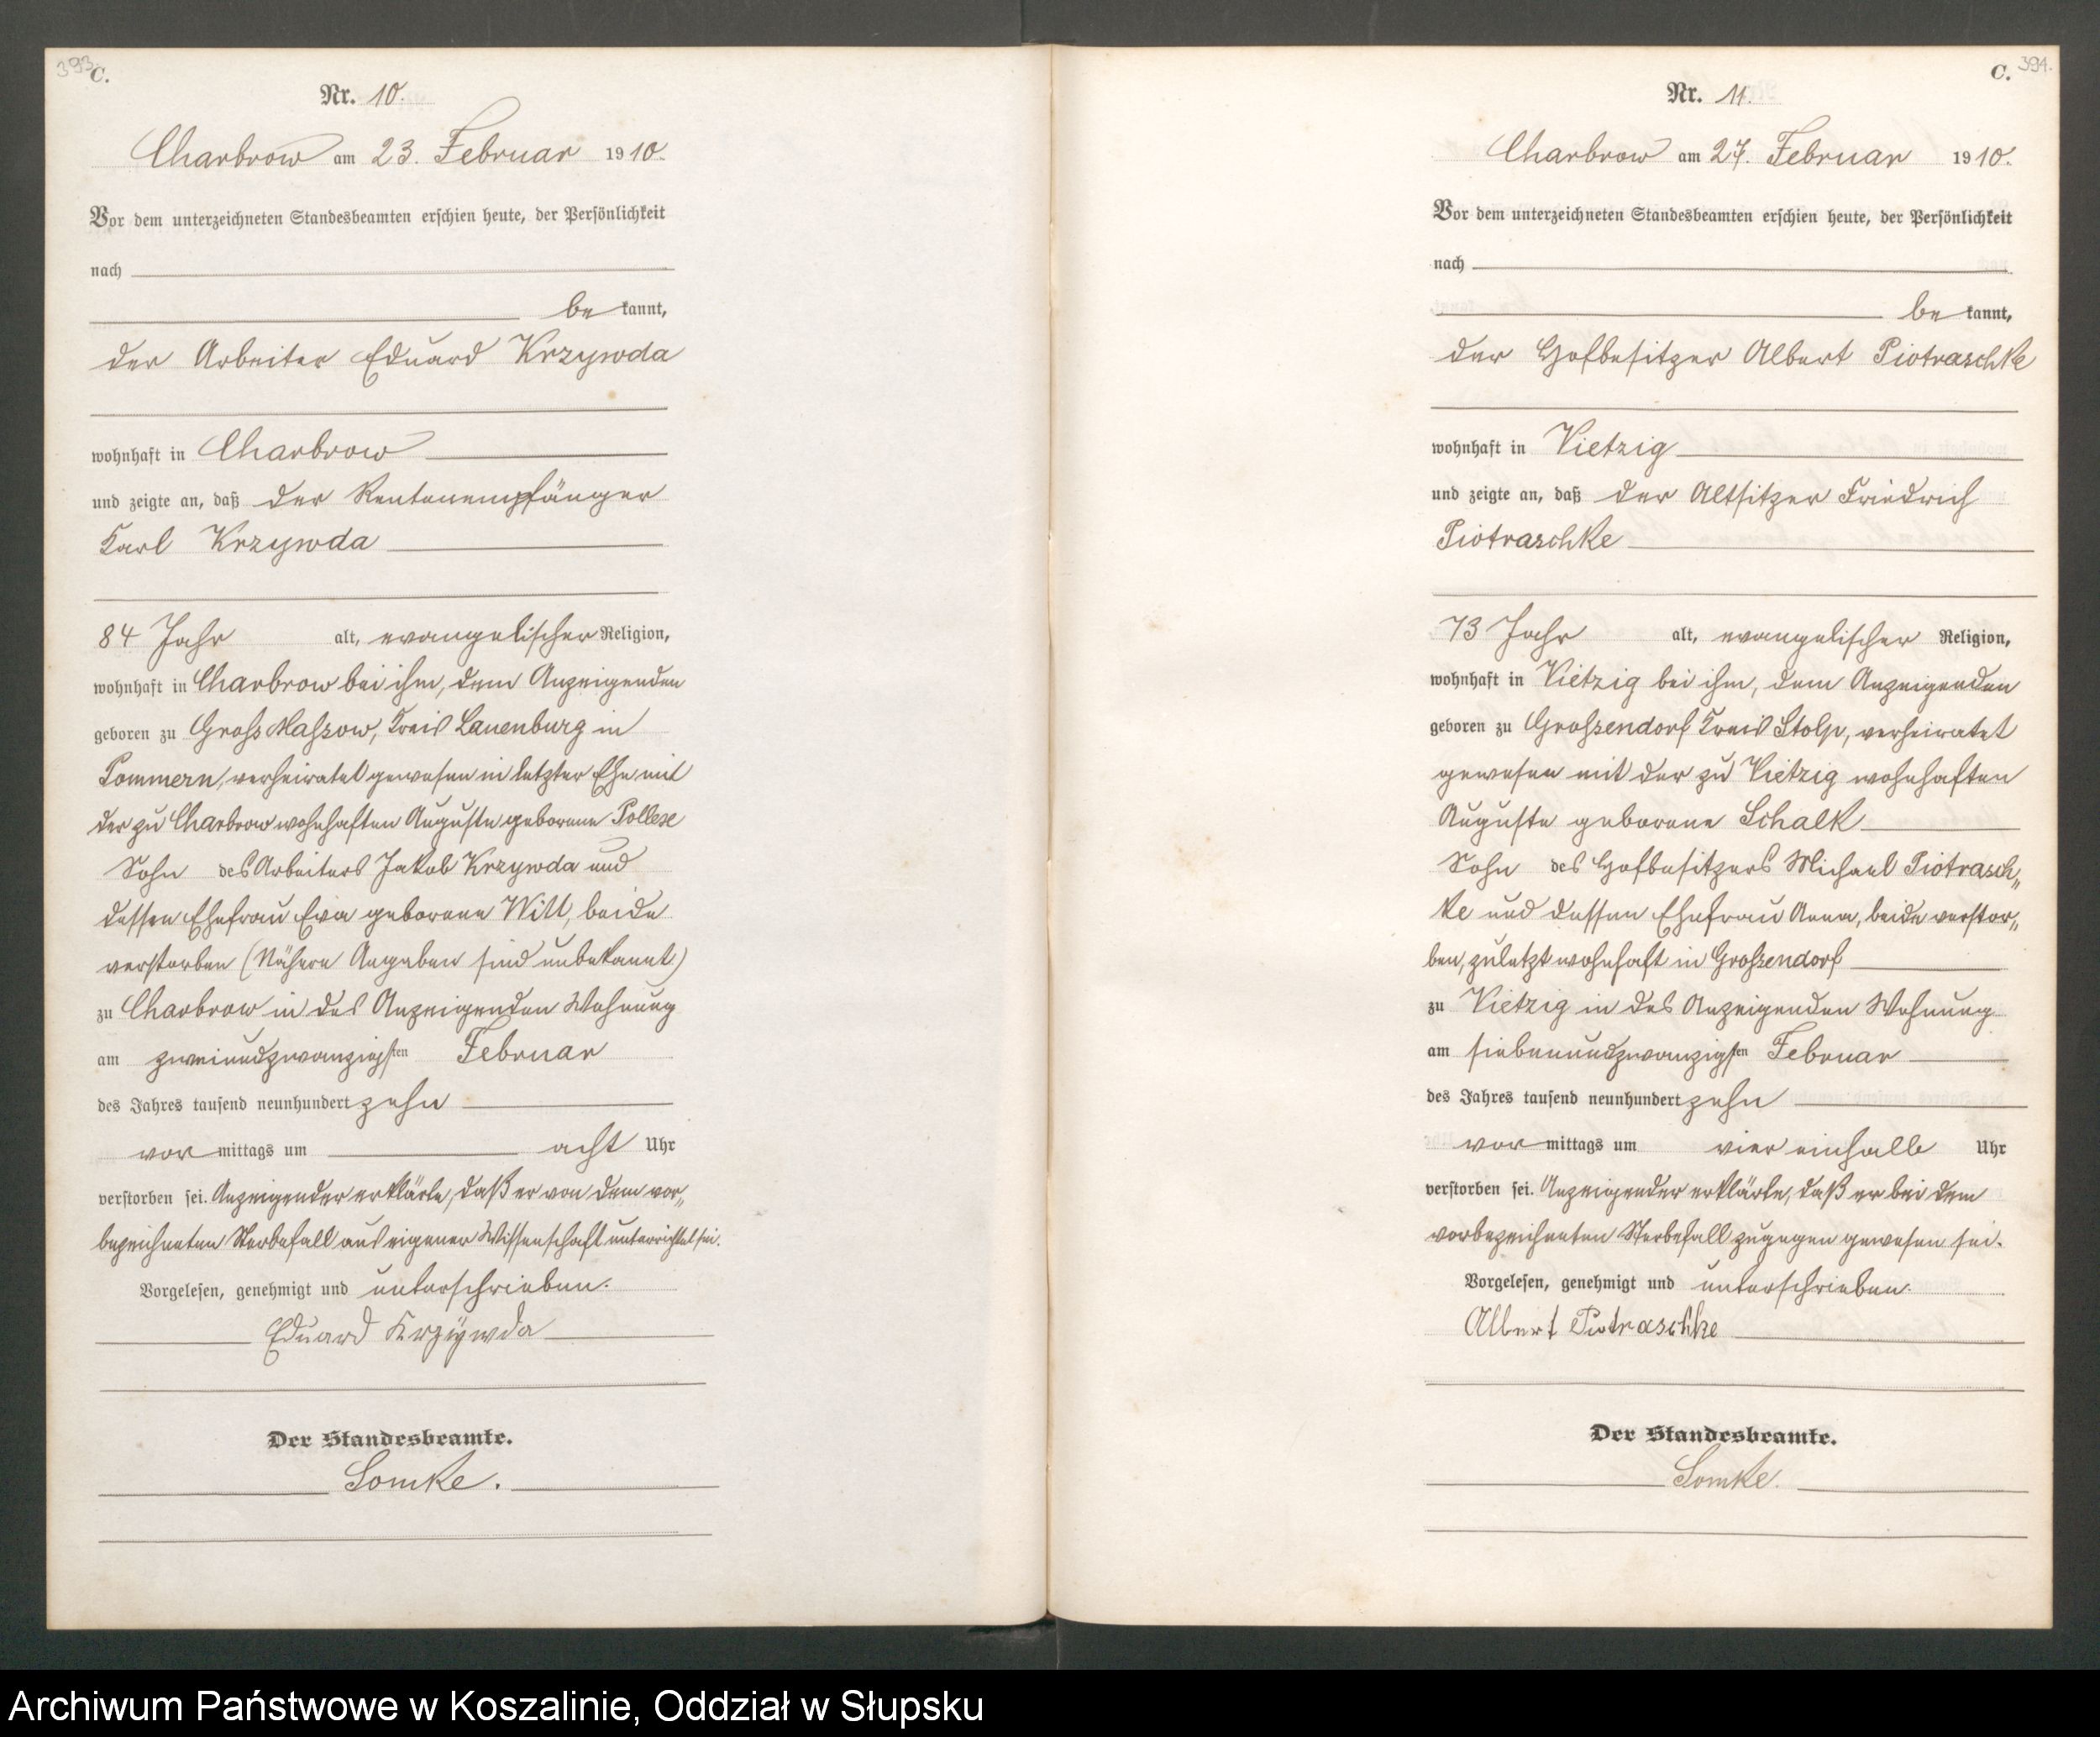 393.
C.
Nr. 10.
Charbrow am 23. Februar 1910.
Vor dem unterzeichneten Standesbeamten erschien heute, der Persönlichkeit
nach
be kannt,
der Arbeiter Eduard Krzywda
wohnhaft in Charbrow
und zeigte an, daß der Rentenempfänger
Karl Krzywda
84 Jahr alt, evangelischer Religion,
wohnhaft in Charbrow bei ihm, dem Anzeigenden
geboren zu Gross Massow, Kreis Lauenburg in
Pommern, verheiratet gewesen in letzter Ehe mit
der zu Charbrow wohnhaften Auguste geborene
Sohn des Arbeiters Jakob Krzywda und
dessen Ehefrau Eva geborene Witt, beide
verstorben (Nähere Angaben sind unbekannt)
zu Charbrow in des Anzeigenden Wohnung
am zweiundzwanzigsten Februar
des Jahres tausend neunhundert zehn
vor mittags um acht Uhr
verstorben sei. Anzeigender erklärte, daß er von dem vor„
bezeichneten Sterbefall aus eigener Wissenschaft unterrichtet sei.
Vorgelesen, genehmigt und unterschrieben.
Eduard Krzÿwda
Der Standesbeamte.
Lomke.
C. 394.
Nr. 11.
Charbrow am 27. Februar 1910.
Vor dem unterzeichneten Standesbeamten erschien heute, der Persönlichkeit
nach
be kannt,
der Hofbesitzer Albert Piotraschke
wohnhaft in Vietzig
und zeigte an, daß der Altsitzer Friedrich
Piotraschke
73 Jahr alt, evangelischer Religion,
wohnhaft in Vietzig bei ihm, dem Anzeigenden
geboren zu Grossendorf Kreis Stolp, verheiratet
gewesen mit der zu Vietzig wohnhaften
Auguste geborene Schalk
Sohn des Hofbesitzers Michael Piotrasch„
ke und dessen Ehefrau Anna, beide verstor„
ben, zuletzt wohnhaft in Grossendorf
zu Vietzig in des Anzeigenden Wohnung
am siebenundzwanzigsten Februar
des Jahres tausend neunhundert zehn
vor mittags um vier einhalb Uhr
verstorben sei. Anzeigender erklärte, daß er bei dem
vorbezeichneten Sterbefall zugegen gewesen sei.
Vorgelesen, genehmigt und unterschrieben.
Albert Piotraschke
Der Standesbeamte.
Lomke.
Archiwum Państwowe w Koszalinie, Oddział w Słupsku